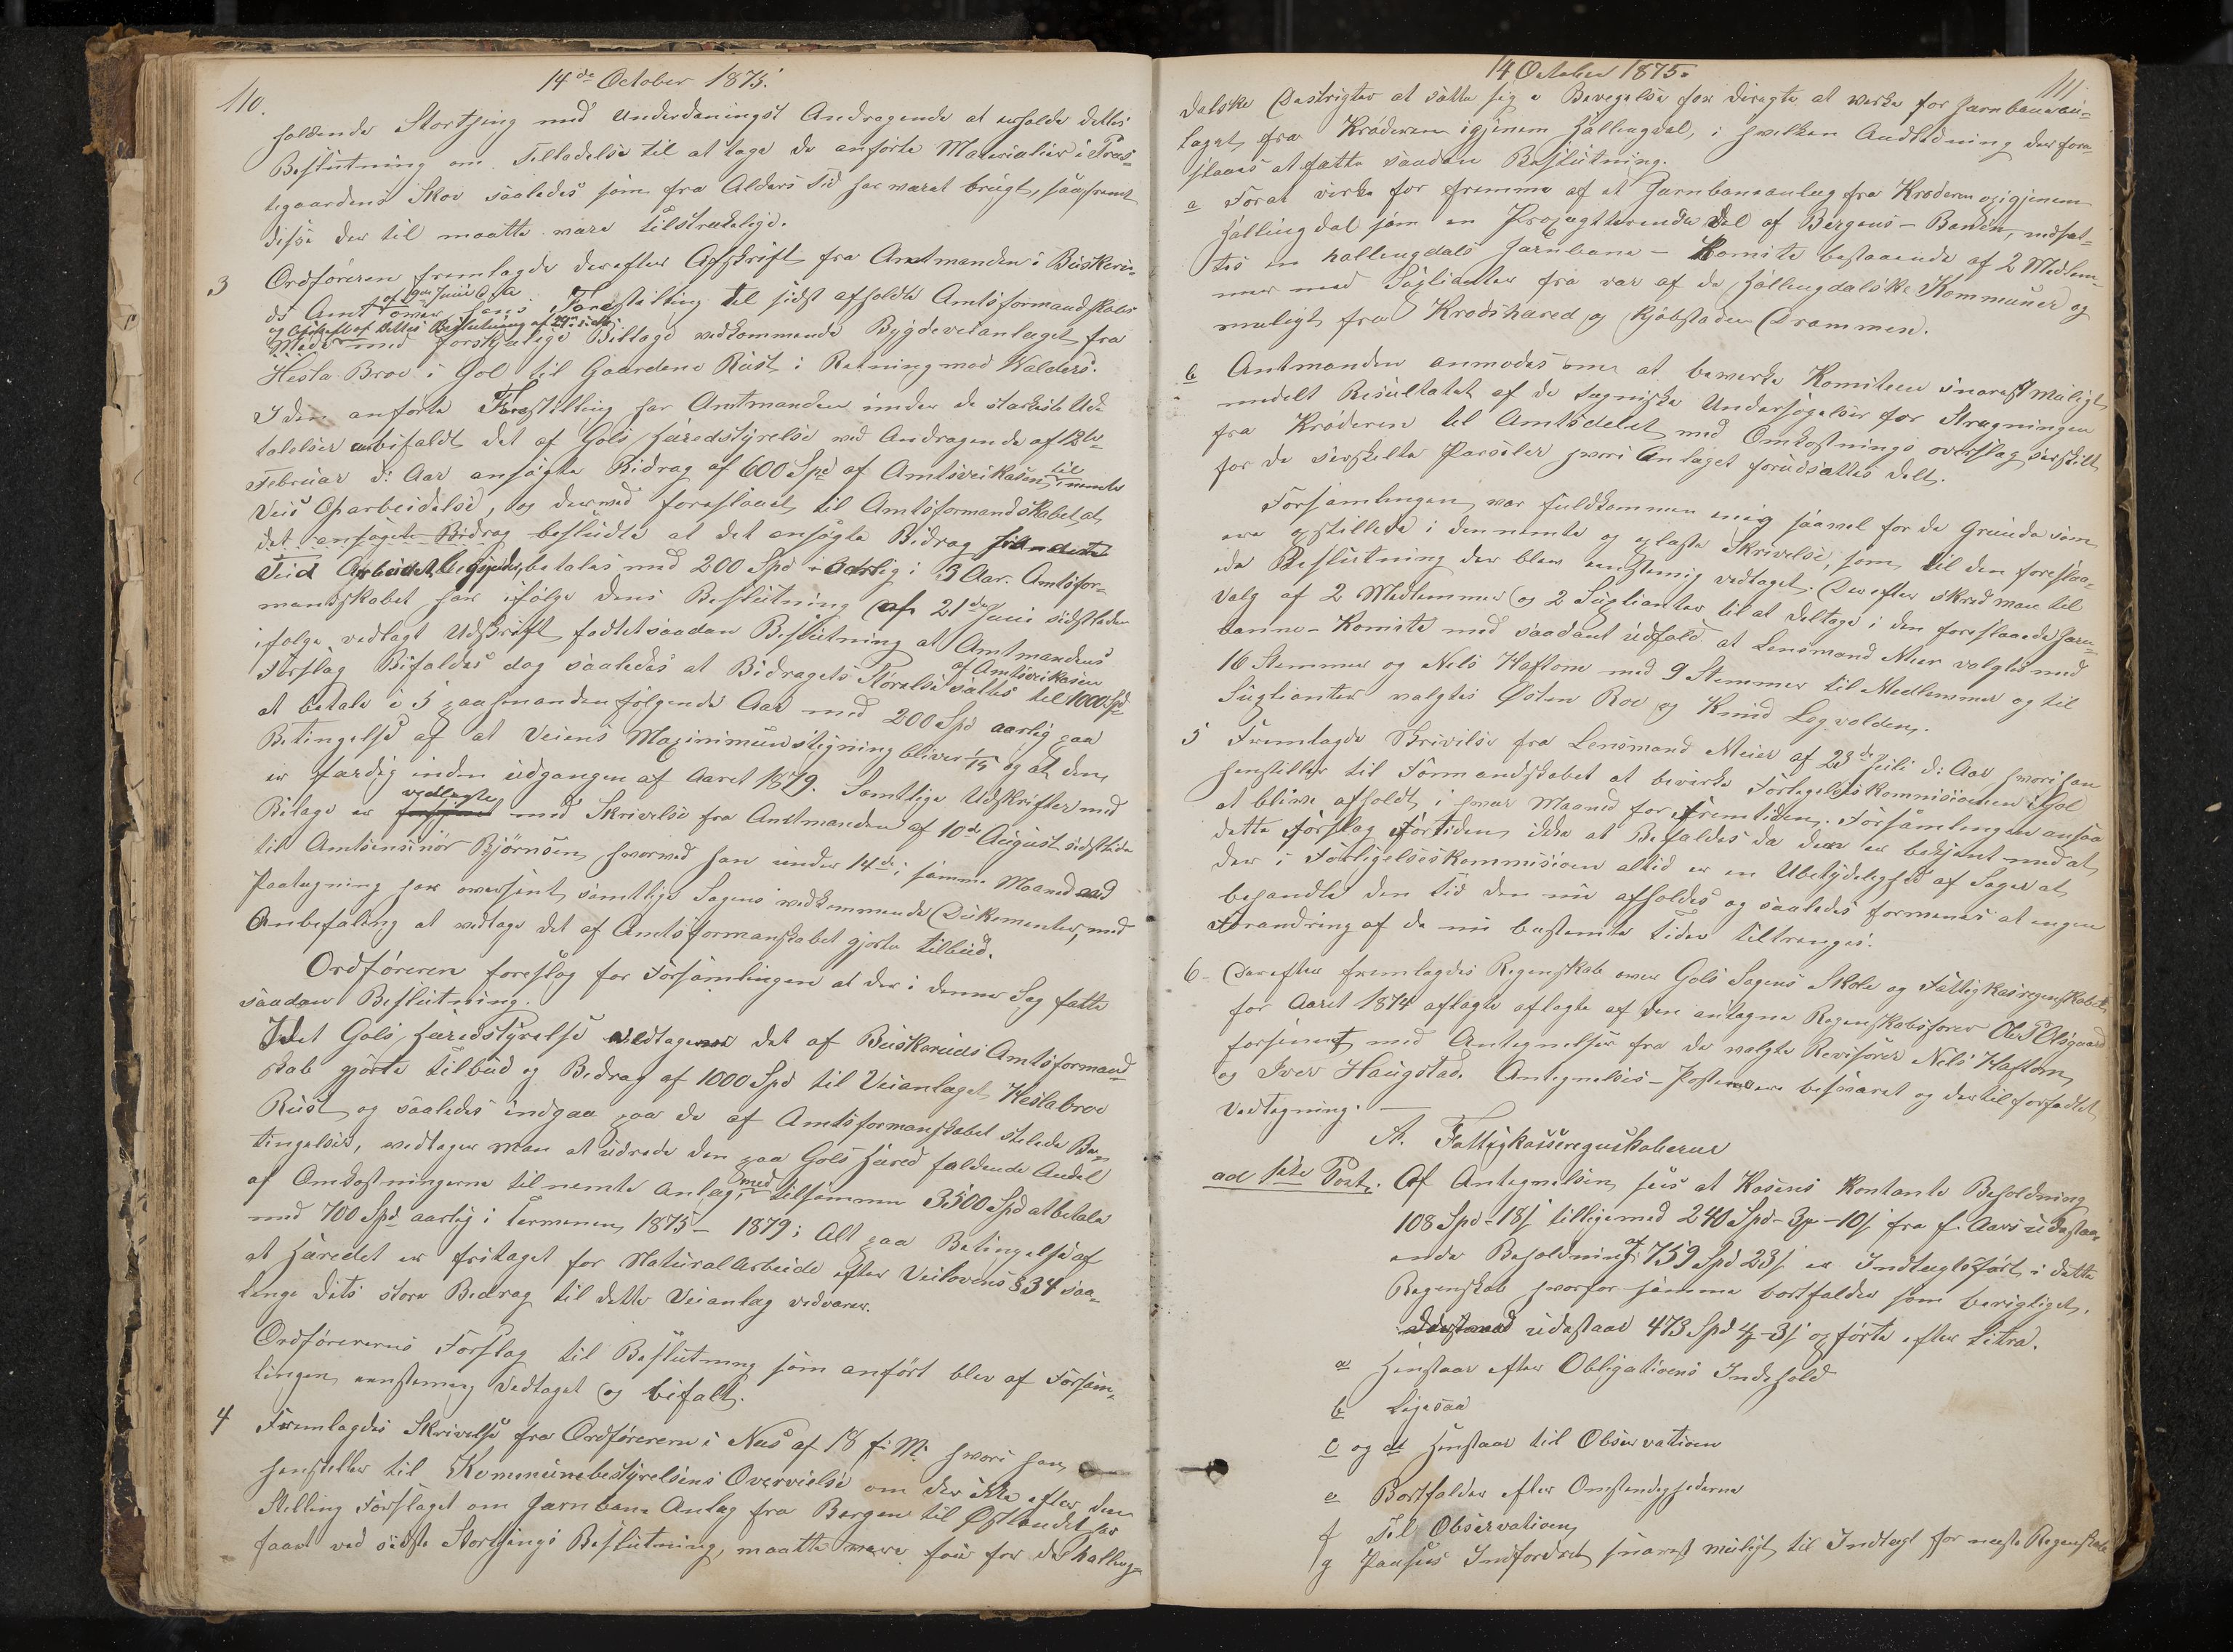 110.
14de October 1875.
holdende Storthing med Underdanigst Andragende at erholde dettes
Beslutning om Tilladelse til at tage de anførte Materialier i Præs-
tegaardens Skov saaledes som fra Alders Tid har været brugt, saafremt
disse der til maatte være tilstrækelige.
3 Ordføreren fremlagde derefter Afskrift fra Amtmanden i Buskeru-
ds Amt over hans Forestilling til sidst afholdte Amtsformandskabs
af 9de Juni d. A.
og Afskrift af dettes Beslutning af 21de s. M.
Møde med forskjælige Billage vedkommende Bygdeveianlæget fra
Hesla Broe i Gol til Gaardene Rust i Retning mod Valders.
I den anførte Forestilling har Amtmanden under de stærkeste Ud-
talelser anbifaldt det af Gols Heredstyrelse ved Andragende af 12te
Februar d: Aar ansøgte Bidrag af 600 Spd af Amtsveikasen til nemte
Veis Oparbeidelse, og derved foreslaaet til Amtsformandskabet at
det ansøgte Bidrag besludte at det ansøgte Bidrag
Tid Arbeidet begyndes, betales med 200 Spd aarlig i 3 Aar. Amtsfor-
mandskabet har ifølge dens Beslutning af 21de Juni sidstleden
ifølge vedlagt Udskrift fadtet saadan Beslutning at Amtmandens
Forslag Bifaldes dog saaledes at Bidragets Størelse sættes til 1000 Spd
af Amtsveikasen
at betale i 5 paahinanden følgende Aar med 200 Spd aarlig paa
Betingelse af at Veiens Maximumstigning bliver 1/15 og at den
er færdig inden udgangen af Aaret 1879. Samtlige Udskrifter med
Bilage er vedlagte med Skrivelse fra Amtmanden af 10de August sidstledne
til Amtsensinør Bjørnsen, hvorved han under 14de i samme Maaned med
Paategning har oversent samtlige Sagens vedkommende Dokumenter, med
Anbefaling at vedtage det af Amtsformanskabet gjorte tilbud.
Ordføreren foreslog for Forsamlingen at der i denne Sag fatte
saadan Beslutning.
Idet Gols Heredstyrelse vedtager det af Buskeruds Amtsformand-
skab gjorte tilbud og Bedrag af 1000 Spd til Veianlæget Heslabroe
Rust og saaledes indgaa paa de af Amtsformanskabet stelede Be-
tingelser, vedtager man at udrede den paa Gols Hered faldende Andel
af Omkostningerne til nemte Anlæg, med tilsammen 3500 Spd at betale
med 700 Spd aarlig i Terminen 1875 - 1879; Alt paa Betingelse af
at Heredet er fritaget for Naturalarbeide efter Veilovens § 34 saa-
lenge dets store Bedrag til dette Veianlæg vedvarer.
Ordførerens Forslag til Beslutning som anført blev af Forsam-
lingen eenstemig vedtaget og bifalt.
4 Fremlagdes Skrivelse fra Ordføreren i Næs af 18 f. M. hvori han
henstiller til Kommunebestyrelsens Overveielse om der ikke efter den
Stilling Forslaget om Jernbane Anlæg fra Bergen til Østlandet har
faaet ved sidste Storthings Beslutning, maatte være for de halling-
14 October 1875.
111.
dalske Destrigter at sætte sig i Bevegelse for diregte at virke for Jernbanean-
læget fra Krøderen igjenem Hallingdal, i hvilken Andledning der fore-
slaaes at fatte saadan Beslutning.
a Forat virke for fremme af et Jernbaneanlæg fra Krøderen og igjenem
Hallingdal som en Projegtterende Del af Bergens-Banen, nedsæt-
tes en hallingdals Jernbane-Komite bestaaende af 2 Medlem-
mer med Supleanter fra vær af de Hallingdalske Kommuner og
muligt fra Krødshered og Kjøbstaden Drammen.
b Amtmanden anmodes om at bevirke Komiteen snarest muligt
medelt Resultatet af de tegniske Undersøgelser for Strægningen
fra Krøderen til Amtsdelet med Omkostnings overslag serskilt
for de serskelte Parseler hvori Anlæget forudsættes delt.
Forsamlingen var fuldkommen enig saavel for de Grunde som
ere opstillede i den nemte og oplæste Skrivelse, som til den foreslaa-
ede Beslutning der blev eenstemig vedtaget. Derefter skred man til
Valg af 2 Medlemmer og 2 Suplianter til at deltage i den foreslaaede Jern-
banne-Komite med saadant udfald at Lensmand Meier valgtes med
16 Stemmer og Nils Haftorn med 9 Stemmer til Medlemmer og til
Suplianter valgtes Østen Roe og Knud Legvolden.
5 Fremlagde Skrivelse fra Lensmand Meier af 23de Juli d: Aar hvori han
henstiller til Formandskabet at bevirke Forligelseskommisionen i Gol
at bliwe afholdt i hwær Maaned for Fremtiden. Forsamlingen ansaa
dette Forslag Fortiden ikke at Befaldes da der er bekjent med at
der i Forligelseskommisionen altid er en Ubetydelighed af Sager at
behandle den tid den nu afholdes og saaledes formenes at ingen
Forandring af de nu bestemte Tider tiltrenges.
6- Derefter fremlagdes Regenskab over Gols Sogens Skole og Fattigkasregenskabet
for Aaret 1874 aflagte aflagte af den antagne Regenskabsfører Ole P Olsgaard
forsinet med Antegnelser fra de valgte Revisorer Nils Haftorn
og Iver Haugstad. Antegnelses-Posterne ere besvaret og dertil forfadtet
Vedtegning. —
A. Fattigkasseregnskaberne
ad 1ste Post. Af Antegnelsen sees at Kasens Kontante Beholdning
108 Spd - 18 s tilligemed 240 Spd - 3 # - 10 s fra f. Aars udestaa-
ende Beholdning af 759 Spd 23 s er Indtægtsført i dette
Regenskab hvorfor samme bortfalder som berigtiget.
udestaae 473 Spd 4 # - 3 s opførte efter Litra.
a Henstaar efter Obligationens Indehold
b Ligesaa
c og d Henstaar til Observation
e Bortfalder efter Omstendighederne
f Til Observation
g Pauses Indfordret snarest muligt til Indtegt for neste Regenskab